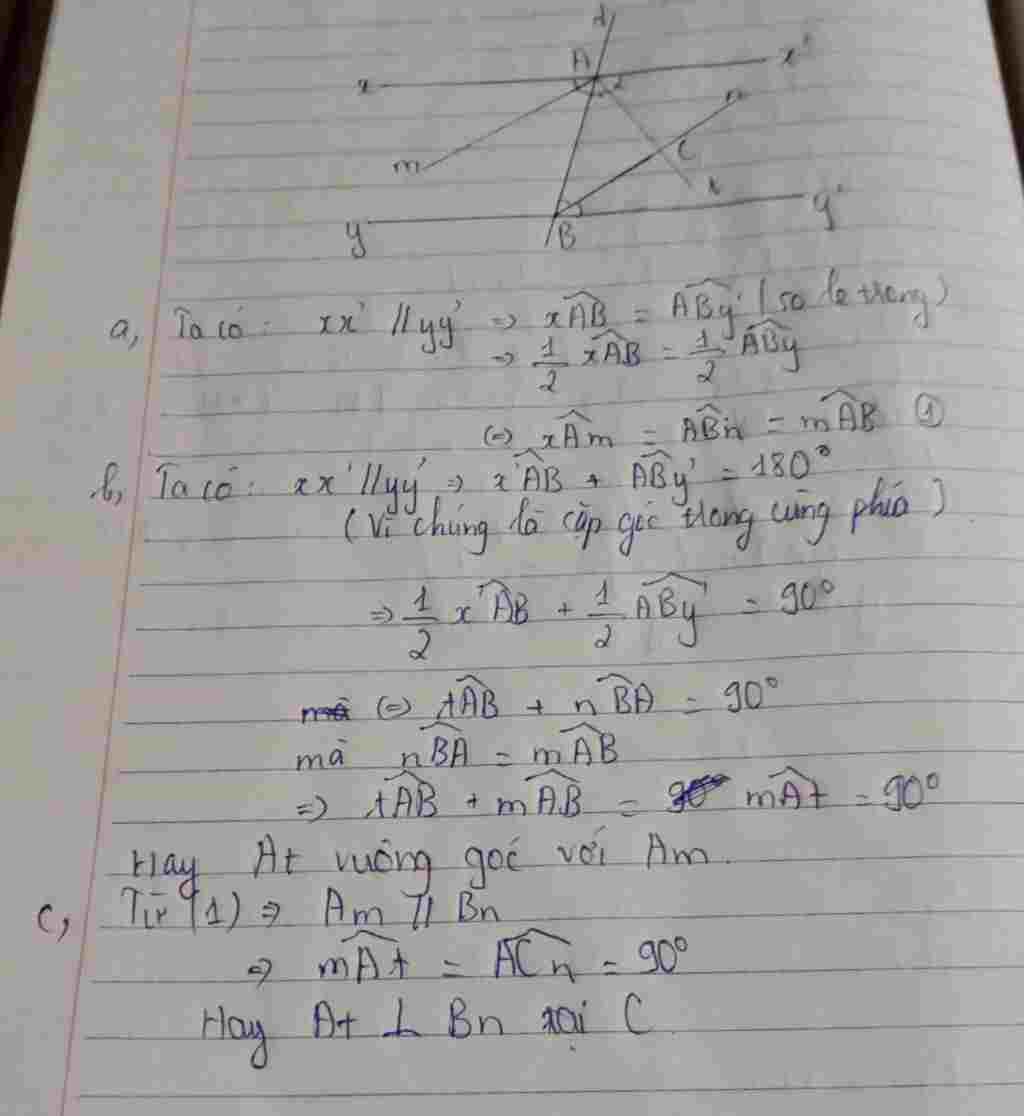 d
A
x
x'
2
n
m
C
t
y
B
y'
a, Ta có: xx' // yy' => xÂB = AB̂y' (so le trong)
=> 1/2 xÂB = 1/2 AB̂y
(=) xÂm = AB̂n = mÂB ①
b, Ta có: xx' // yy' => x'ÂB + AB̂y' = 180°
(Vì chúng là cặp góc trong cùng phía)
=> 1/2 x'ÂB + 1/2 AB̂y' = 90°
(=) tÂB + nB̂A = 90°
mà nB̂A = mÂB
=> tÂB + mÂB = mÂt = 90°
Hay At vuông góc với Am.
c, Từ (1) => Am // Bn
=> mÂt = AĈn = 90°
Hay At ⊥ Bn tại C